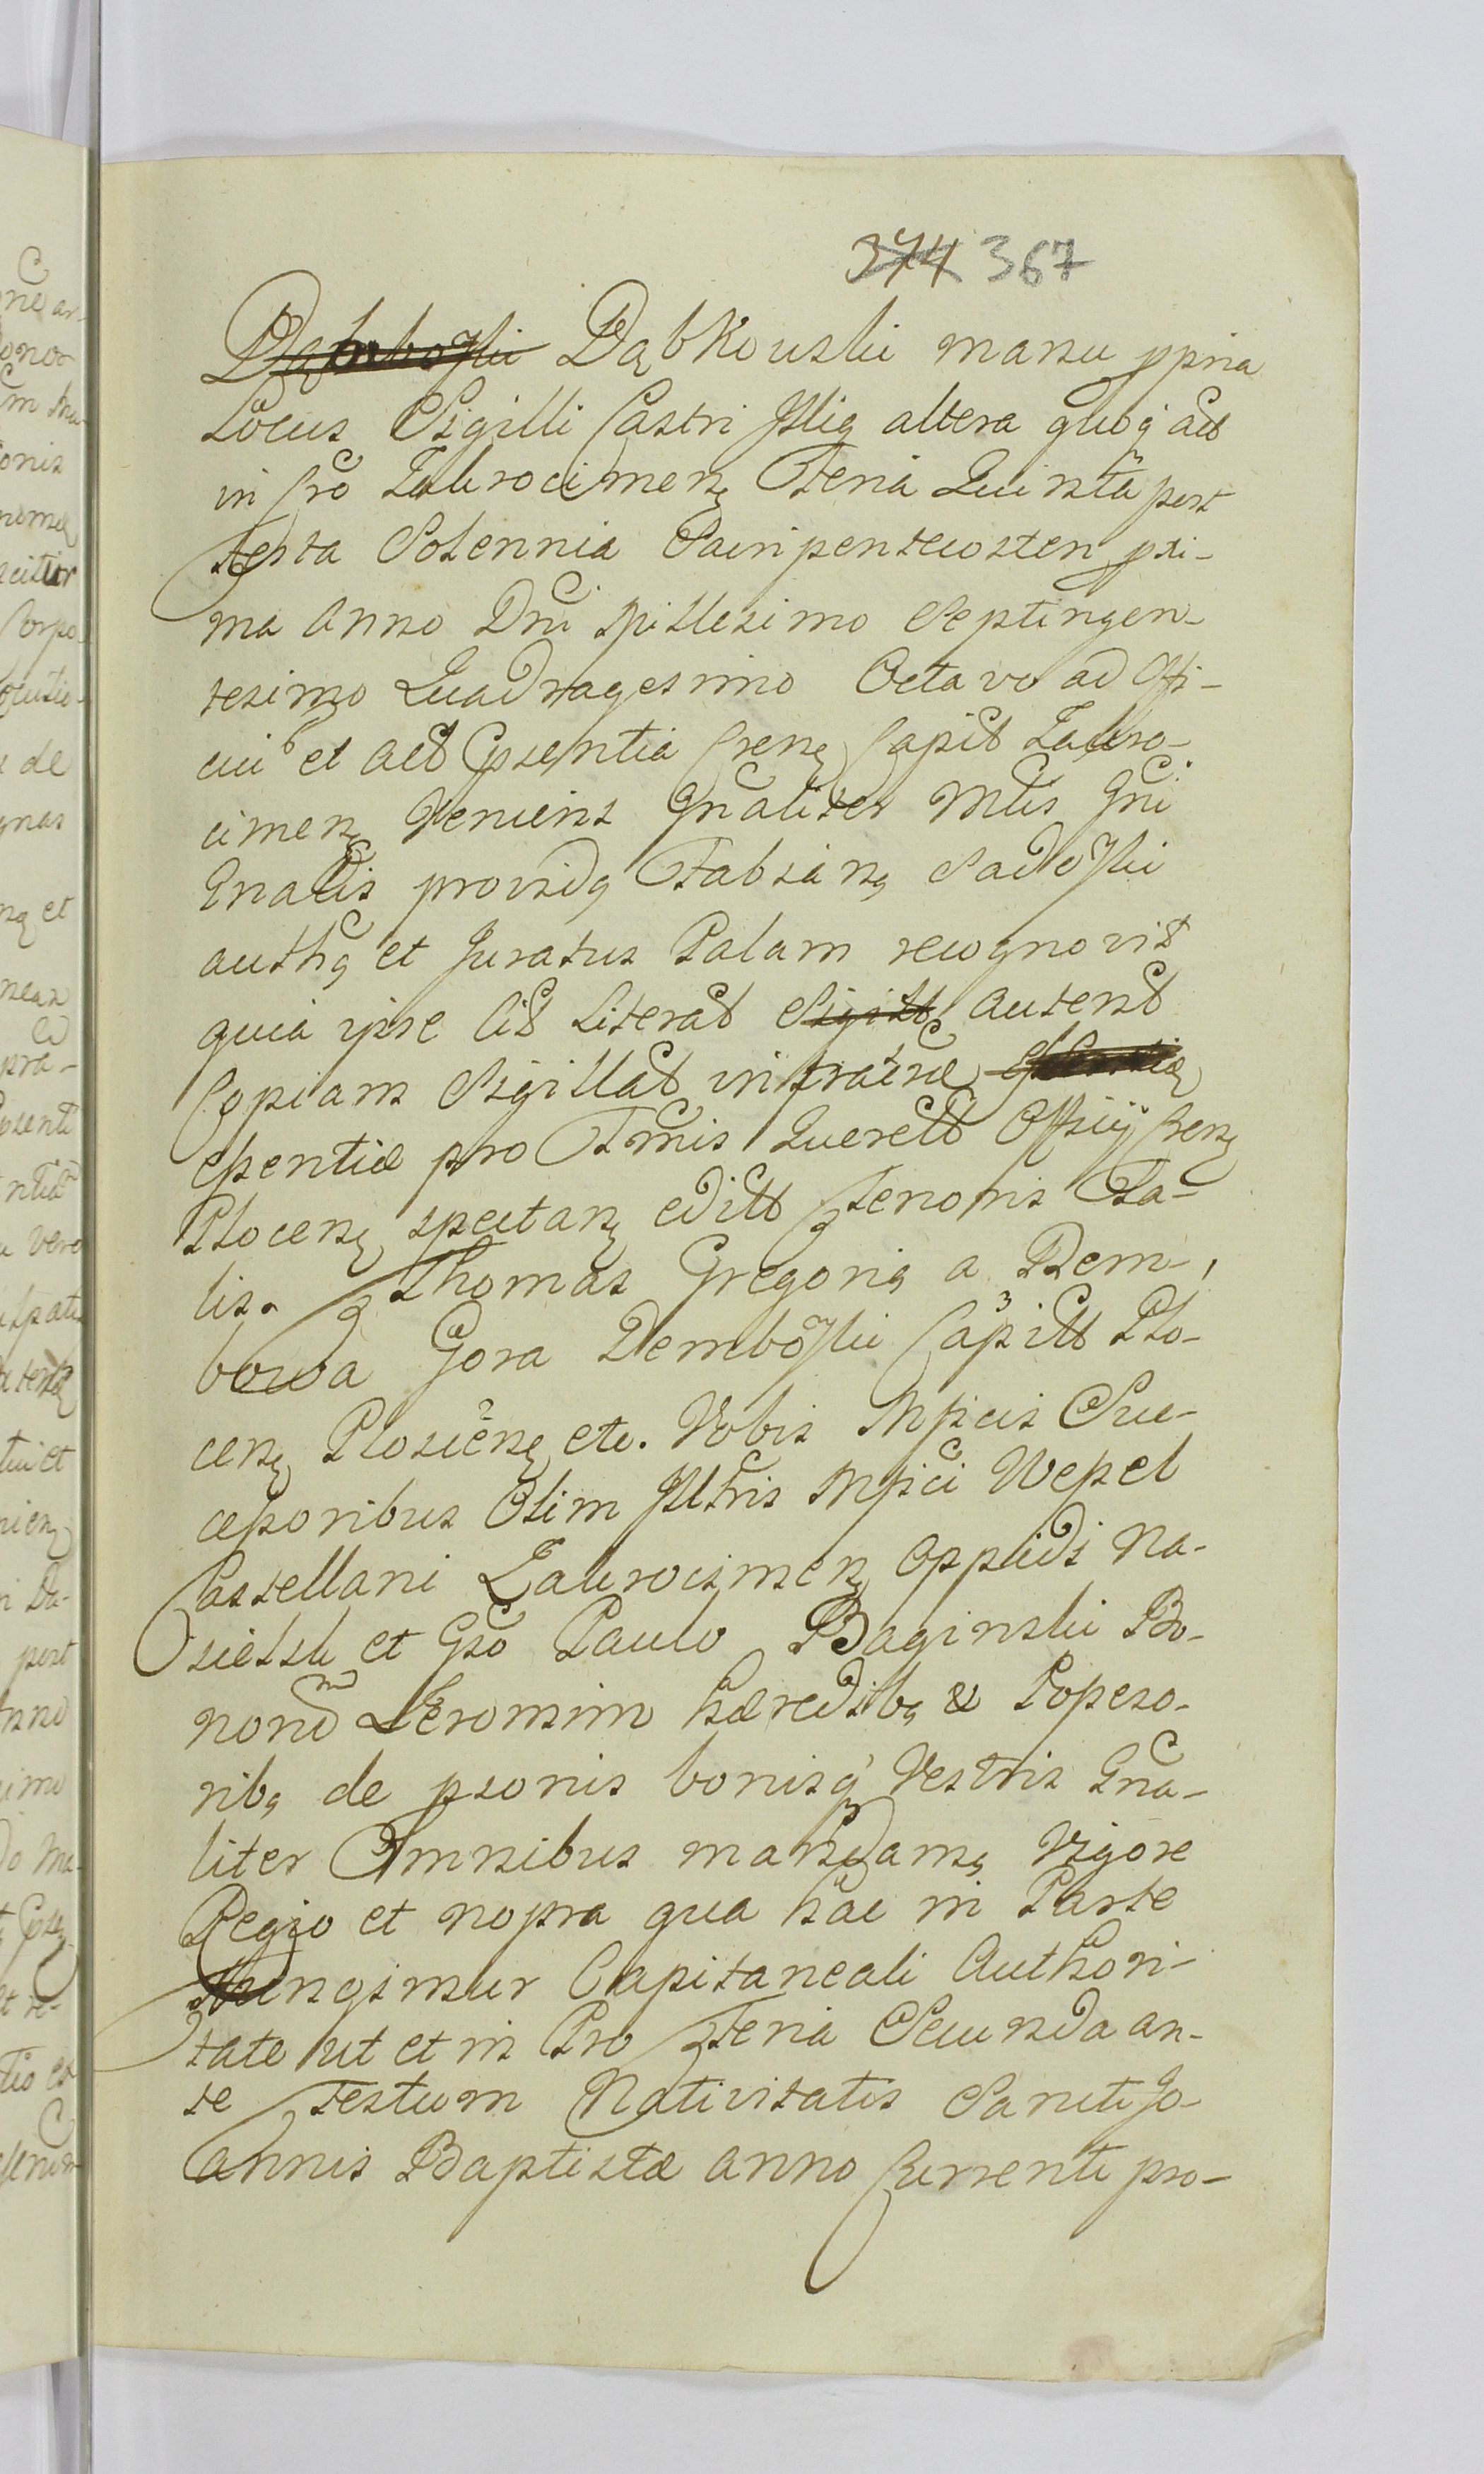 374 367
Dąbrboski Dąbkouski manu ppria
Locus Sigilli Castri Illig altera quoq act
in Cro Zakrocimen Feria Quinta post
Festa Solennia Sacri pentecosten pxi-
ma anno Dni Millesimo Septingen-
tesimo Quadragesimo Octavo ad Offi-
ciu et act psentia Crens Capit Zakro-
cimens Veniens Gnaliter Mtis Gni
Gnalis providq Fabian Sadoski
authq et Juratus Palam recognovit
quia ipse Cit Literat Sigilt autent
Copiam Sigillat infratrae
essentiae pro Tmis Querelt Offiij Crens
Plocens spectans editt Tenoris Ta-
lis. Thomas Gregoriq a Dem-
bowa Gora Demboski Capitt Plo-
cens Plosiens etc. Vobis Mficis Suc-
cessoribus Olim Illtris Mfici Wessel
Castellani Zakrocimens Oppidi Na-
sielsk et Gso Paulo Baginski Bo-
norm Leromim haeredibq & Possesso-
ribq de psonis bonisq Vestris Gna-
liter Omnibus mandamq Vigore
Regio et nostra qua hac in Parte
fungimur Capitaneali Authori-
tate ut et in Cro Feria Secunda an-
te Festum Nativitatis Sancti Jo-
annis Baptistae anno Currenti pro-